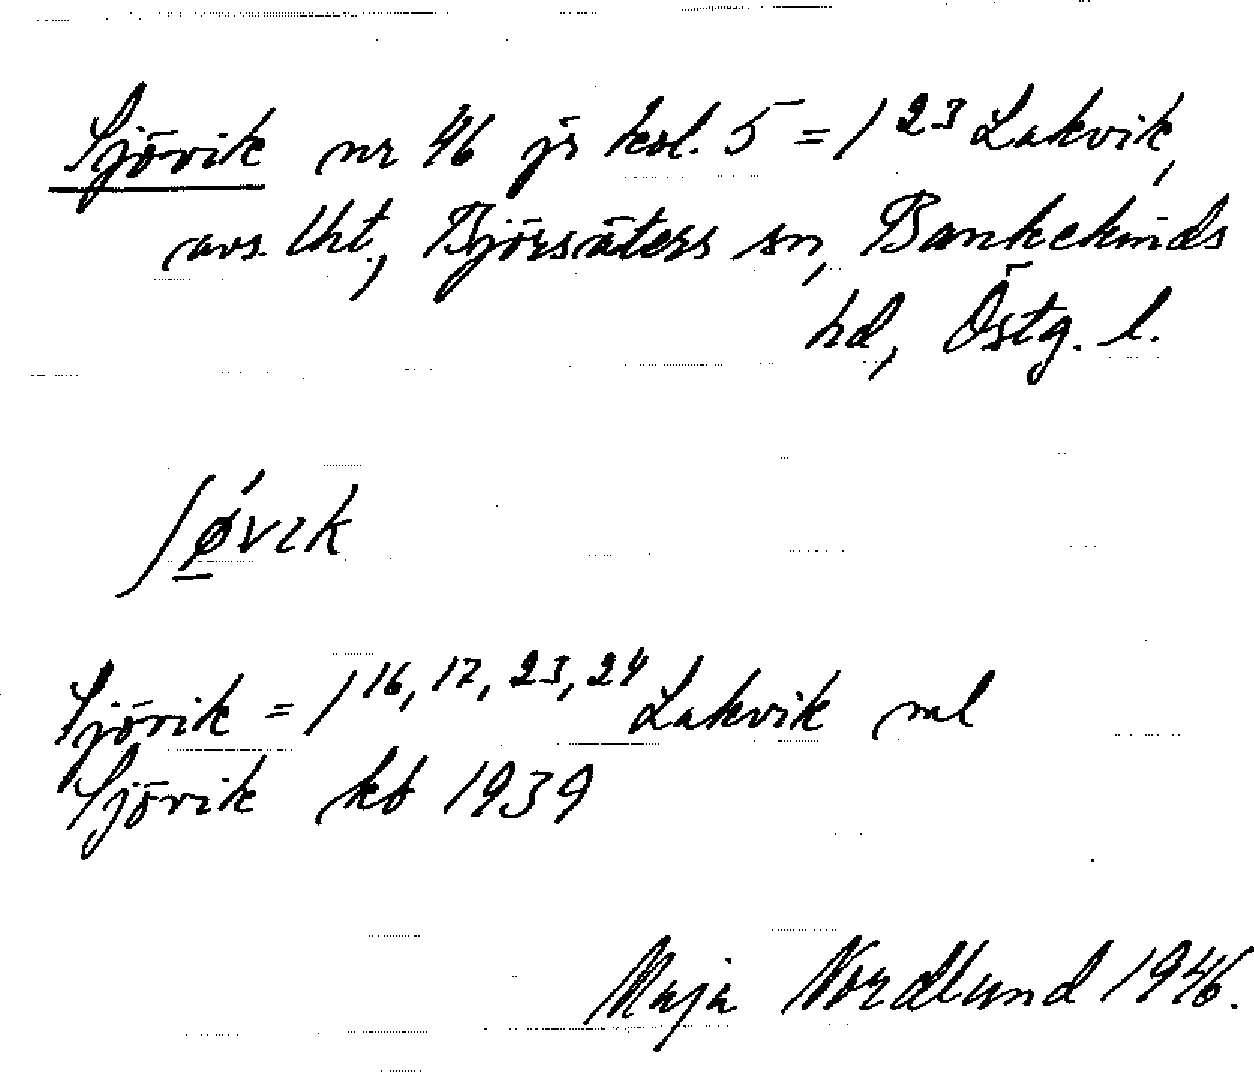 Sjövik nr 46 jr kol. 5 = 1 23 Lakvik,
avs. lht., Björsäters sn, Bankekinds
hd, Östg. l.
ʃǿ̱vɪk
Sjövik = 1 16, 17, 23, 24 Lakvik ml
Sjövik kb 1939
Maja Nordlund 1946.